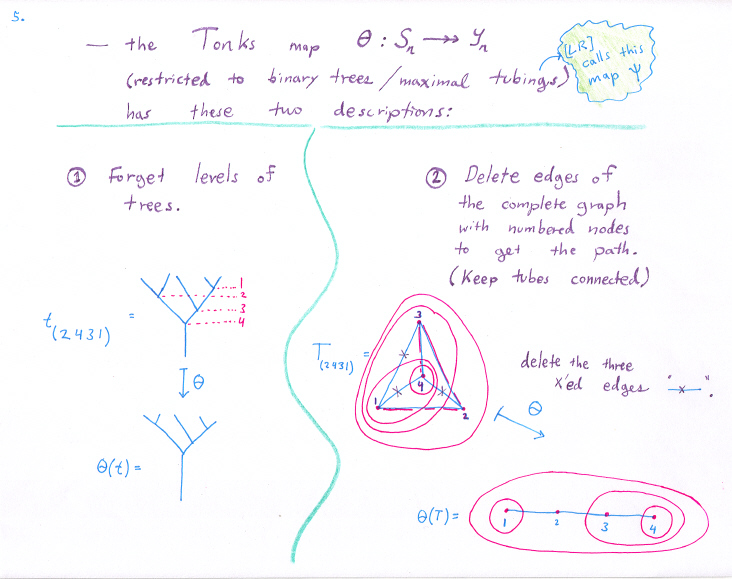 5.
— the Tonks map Θ : Sₙ ↠ Yₙ
(restricted to binary trees / maximal tubings)
has these two descriptions:
[LR]
calls this
map Ψ
① Forget levels of
trees.
t(2431) =
1
2
3
4
Θ
Θ(t) =
② Delete edges of
the complete graph
with numbered nodes
to get the path.
(Keep tubes connected)
T(2431) =
3
4
1
2
delete the three
x'ed edges "—x—".
Θ
Θ(T) =
1 2 3 4